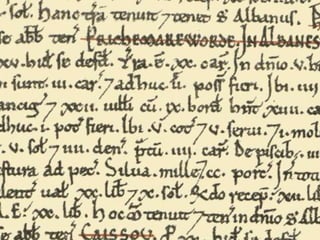 sol. Hanc tra tenuit 7 tenet S Albanus.
se abb ten PRICHEMAREWORDE. IN ALBANES
xv. hid se defd. Tra. ē. xx. car. In dnio. v. h
sunt. iii. car. 7 adhuc. ii. poss fieri. Ibi. iiii
ancig 7 xxii. uitti cū. ix. bord hnt. xiii. ca
dhuc. i. pot fieri. Ibi. v. cot 7 v. serui. 7 i. mol
v. sol 7 iiii. den. ptū. iiii. car. De piscib.
stura ad pec. Silua. mille 7 cc. porc. In to
ualet ual. xx. lib 7 x. sol. Qdo recep. xii. li
E. xx. lib. Hoc ō tenuit 7 ten in dnio S Al
se abb ten CAISSOU. p. xx. hid se defd